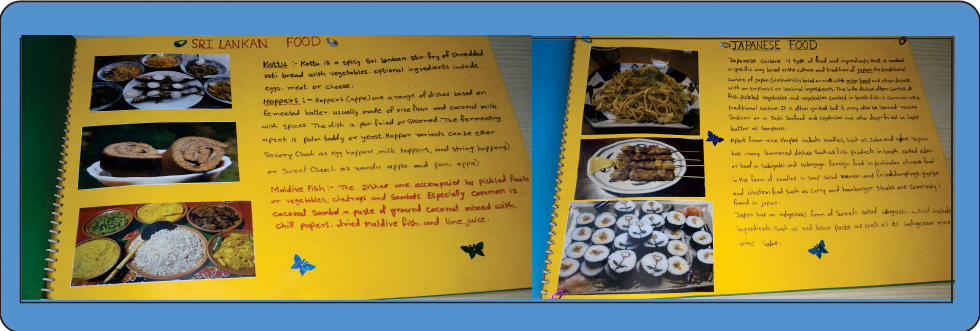 SRI LANKAN FOOD
Kottu :- Kottu is a spicy Sri Lankan stir-fry of shredded
roti bread with vegetables. optional ingredients include
egg, meat or cheese.
Hoppers :- Hoppers (appe) are a range of dishes based on
fermented batter. usually made of rice flour and coconut milk
with spices. The dish is pan fried or steamed. The fermenting
agent is palm toddy or yeast. Hopper variants can be either
savory (such as egg hoppers, milk hoppers, and string hoppers)
or sweet (such as vandu appa and pani appa)
Maldive Fish:- The Dishes are accompanied by pickled fruits
or vegetables, chutneys and Sambols Especially Common is
coconut sambol a paste of ground coconut mixed with
chill papers, dried maldive fish and lime juice.
JAPANESE FOOD
Japanese cuisine is type of food and ingredients that is cooked
in specific way based on the culture and tradition of Japan the traditional
cuisine of Japan is based on rice with miso soup and other dishes
with an emphasis on seasonal ingredients. The side dishes often consist of
fish pickled vegetables and vegetables cooked in broth fish is common in the
traditional cuisine. It is often grilled but it may also be served raw as
Sashimi or in Sushi Seafood and vegetables are also deep-fried in light
batter as tempura.
Apart from rice, staples include noodles, such as Soba and
has many Simmered dishes such as fish products in broth called oden
or beef in Sukiyaki and nikujaga. foreign food in particular chinese food
in the form of noodles in soup called ramen and fried dumplings, gyoza
and western food such as curry and hamburger steaks are commonly
found in japan.
Japan has an indigenous form of sweets called
ingredients such as red bean paste as well as its indigenous rice
wine Sake.